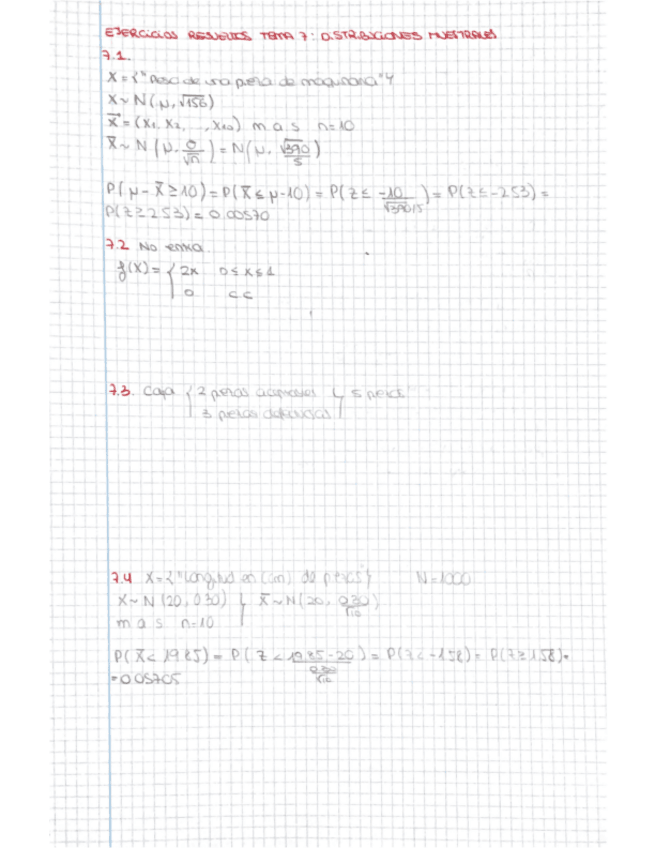 EJERCICIOS RESUELTOS TEMA 7: DISTRIBUCIONES MUESTRALES
7.1.
X = {"Peso de una pieza de maquinaria"}
X ~ N(μ, √156)
X⃗ = (X1, X2, ..., X10) m a s n=10
X̄ ~ N(μ, σ/√n) = N(μ, √390/5)
P(μ - X̄ ≥ 10) = P(X̄ ≤ μ-10) = P(Z ≤ -10/(√390/5)) = P(Z ≤ -2.53) =
P(Z ≥ 2.53) = 0.00570
7.2 No entra
f(x) = { 2x 0 ≤ x ≤ 1
0 cc
7.3. Caja { 2 piezas
3 piezas } 5 piezas
7.4 X = {"Longitud en (cm) de piezas"} N=1000
X ~ N(20, 0.30) } X̄ ~ N(20, 0.30/√10)
m a s n=10
P(X̄ < 19.85) = P(Z < (19.85-20)/(0.30/√10)) = P(Z < -1.58) = P(Z ≥ 1.58) =
= 0.05705